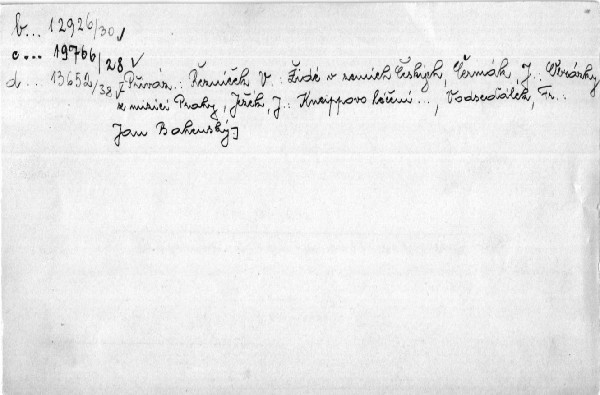 b... 12926/30 ✓
c... 19766/28 ✓
d... 13652/38 [Přiváz.: Řezníček V.: Židé v zemích Českých, Čermák, J.: Obrázky
z misicí Prahy, Ježek, J.: Kneippovo léčení..., Vodseďálek, Fr.:
Jan Bakenský]